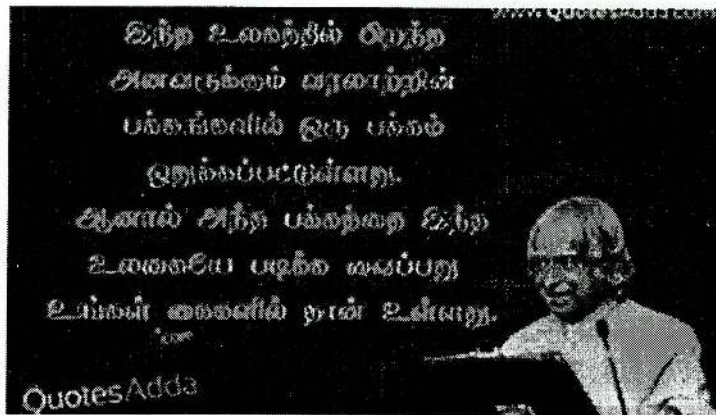 www.QuotesAdda.com
இந்த உலகத்தில் பிறந்த
அனைவருக்கும் வரலாற்றின்
பக்கங்களில் ஒரு பக்கம்
ஒதுக்கப்பட்டுள்ளது.
ஆனால் அந்த பக்கத்தை இந்த
உலகையே படிக்க வைப்பது
உங்கள் கைகளில் தான் உள்ளது.
QuotesAdda